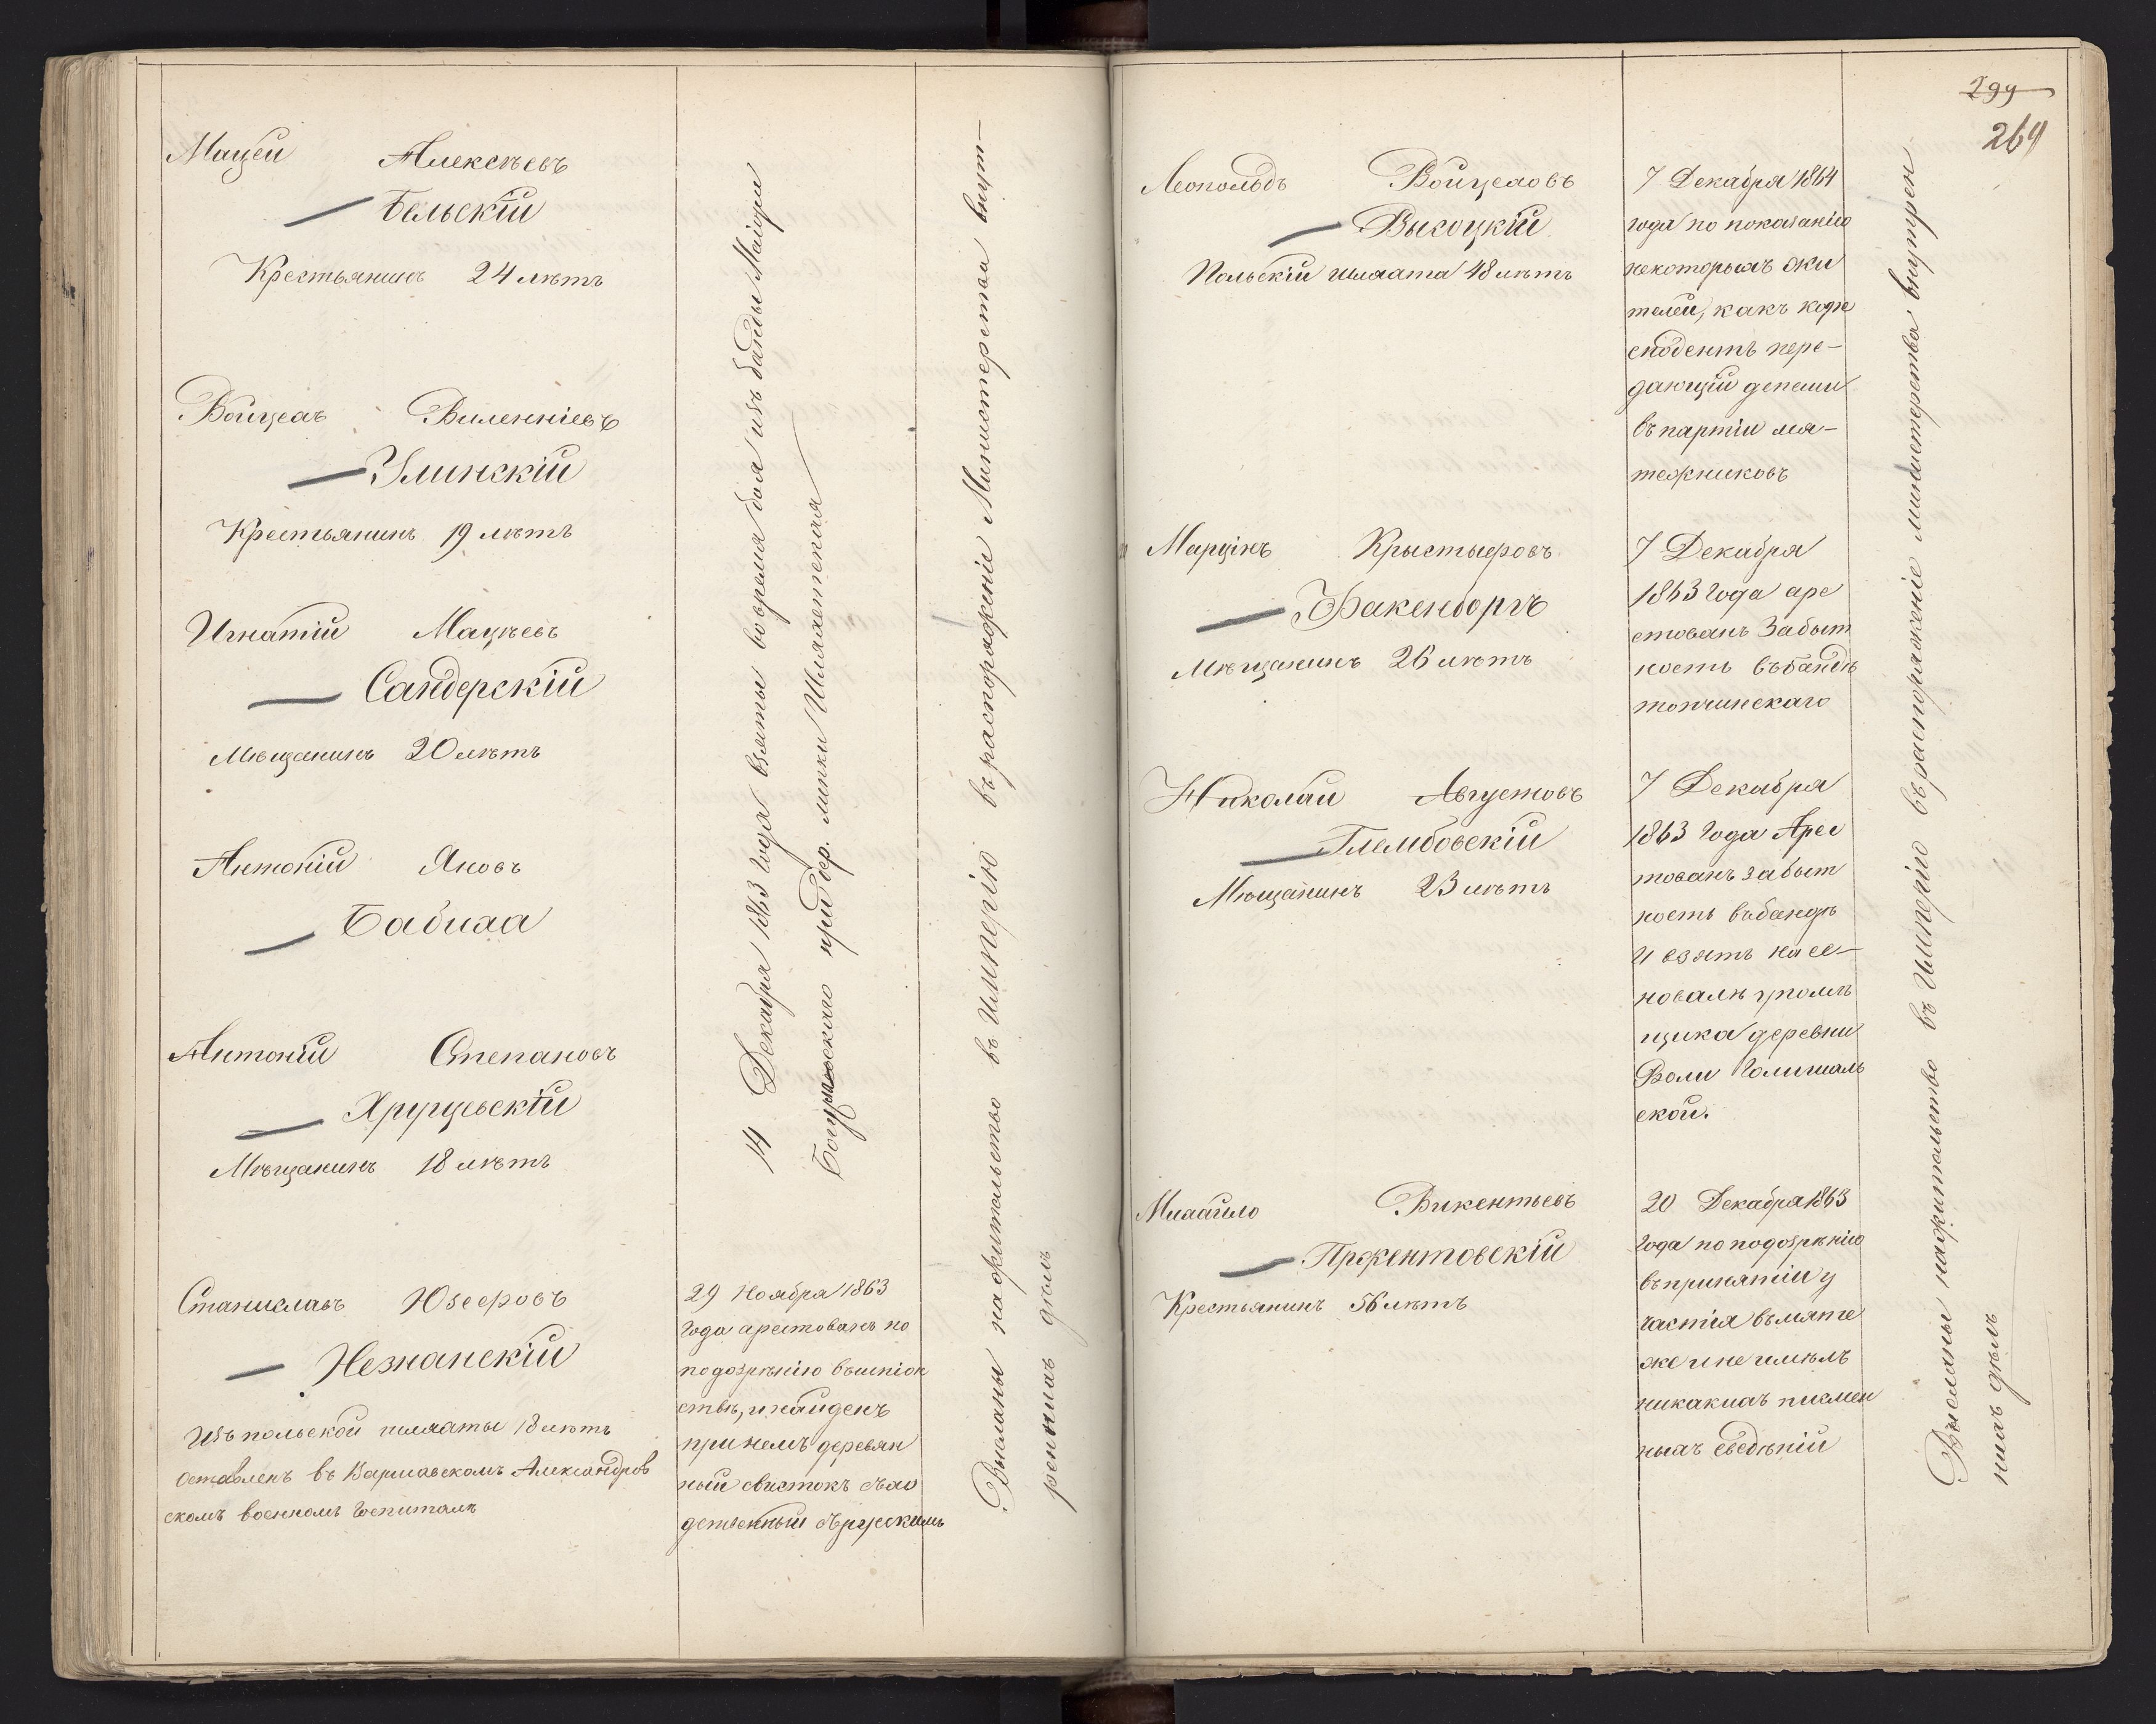 Мацей Алексѣевъ
Бельскій
Крестьянинъ 24 лѣтъ
Войцехъ
Улинскій
Крестьянинъ 19 лѣтъ
Игнатій Мацѣевъ
Сандерскій
Мѣщанинъ 20 лѣтъ
Антоній Яновъ
Бабиха
Антоній Степановъ
Хруцьскій
Мѣщанинъ 18 лѣтъ
Станиславъ Юзефовъ
Незнанскій
Изъ польской шляхты 18 лѣтъ
оставленъ въ Варшавскомъ Александров
скомъ военномъ Госпиталѣ
14 Декабря 1863 года взяты во время боя изъ банды Маіора
при дер. липки Шляхетская
29 Ноября 1863
года арестованъ по
подозрѣнію въ шпіон
ствѣ, и найденъ
при немъ деревян
ный свистокъ схо
дственный съ русскимъ
Высланы на жительство въ Имперію въ распоряженіе Министерства внут-
ренныхъ дѣлъ
299
264
Леопольдъ Войцеховъ
Высоцкій
Польскій шляхта 48 лѣтъ
7 Декабря 1864
года по показанію
некоторыхъ жи
телей, какъ коре
сподентъ пере-
дающій депеши
въ партіи мя-
тежниковъ
Марцінъ Крыстыфовъ
Факенборгъ
Мѣщанинъ 26 лѣтъ
7 Декабря
1863 года аре
стованъ за быт
ность въ бандѣ
топчинскаго
Николай Августовъ
Глембовскій
Мѣщанинъ 23 лѣтъ
7 Декабря
1863 года Арес
тованъ за быт
ность въ бандѣ
и взятъ на се-
новалѣ у
щика деревни
Воли
ской.
Михайло Викентьевъ
Пржентовскій
Крестьянинъ 56 лѣтъ
20 Декабря 1863
года по подозрѣнію
въ принятіи у
частія въ мяте
же и не имѣлъ
никакихъ писмен
ныхъ сведѣній
Высланы на жительство въ Имперію въ распоряженіе министерства внутрен
нихъ дѣлъ